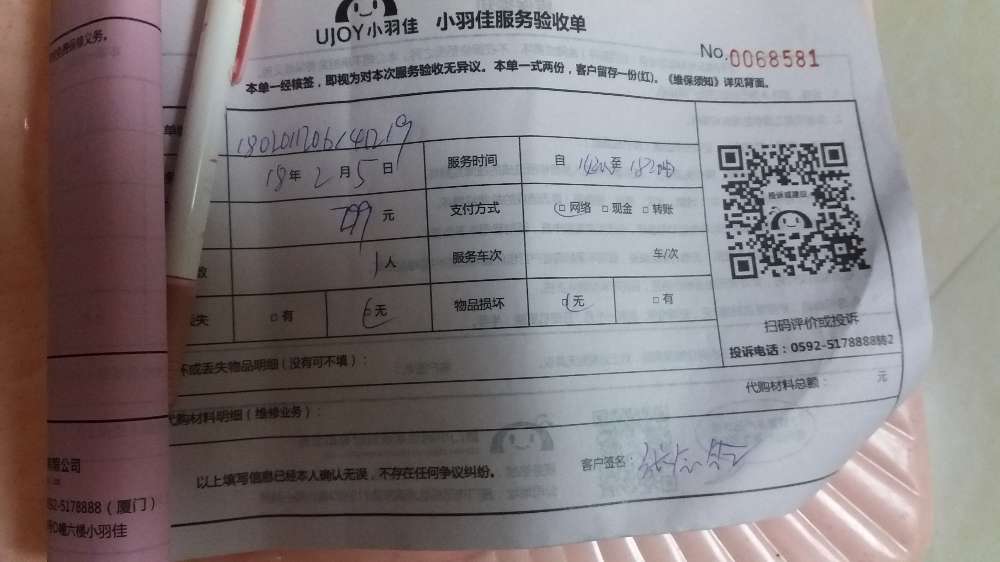 免费保修义务。
UJOY小羽佳 小羽佳服务验收单
No.0068581
本单一经接签，即视为对本次服务验收无异议。本单一式两份，客户留存一份(红)。《维保须知》详见背面。
18年2月5日 服务时间 自 至
元 支付方式 □网络 □现金 □转账
投诉或建议
数 1人 服务车次 车/次
丢失 □有 □无 物品损坏 □无 □有
扫码评价或投诉
投诉电话：0592-5178888转2
坏或丢失物品明细（没有可不填）：
代购材料总额： 元
代购材料明细（维修业务）：
以上填写信息已经本人确认无误，不存在任何争议纠纷。
客户签名：
有限公司
592-5178888（厦门）
幢六楼小羽佳